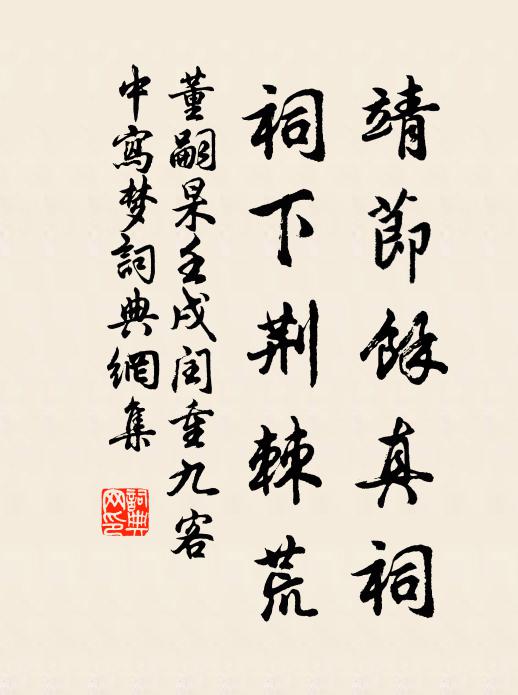 靖節餘真祠
祠下荆棘荒
董嗣杲壬戌閏重九客
中寫梦詞典網集
詞典
网印